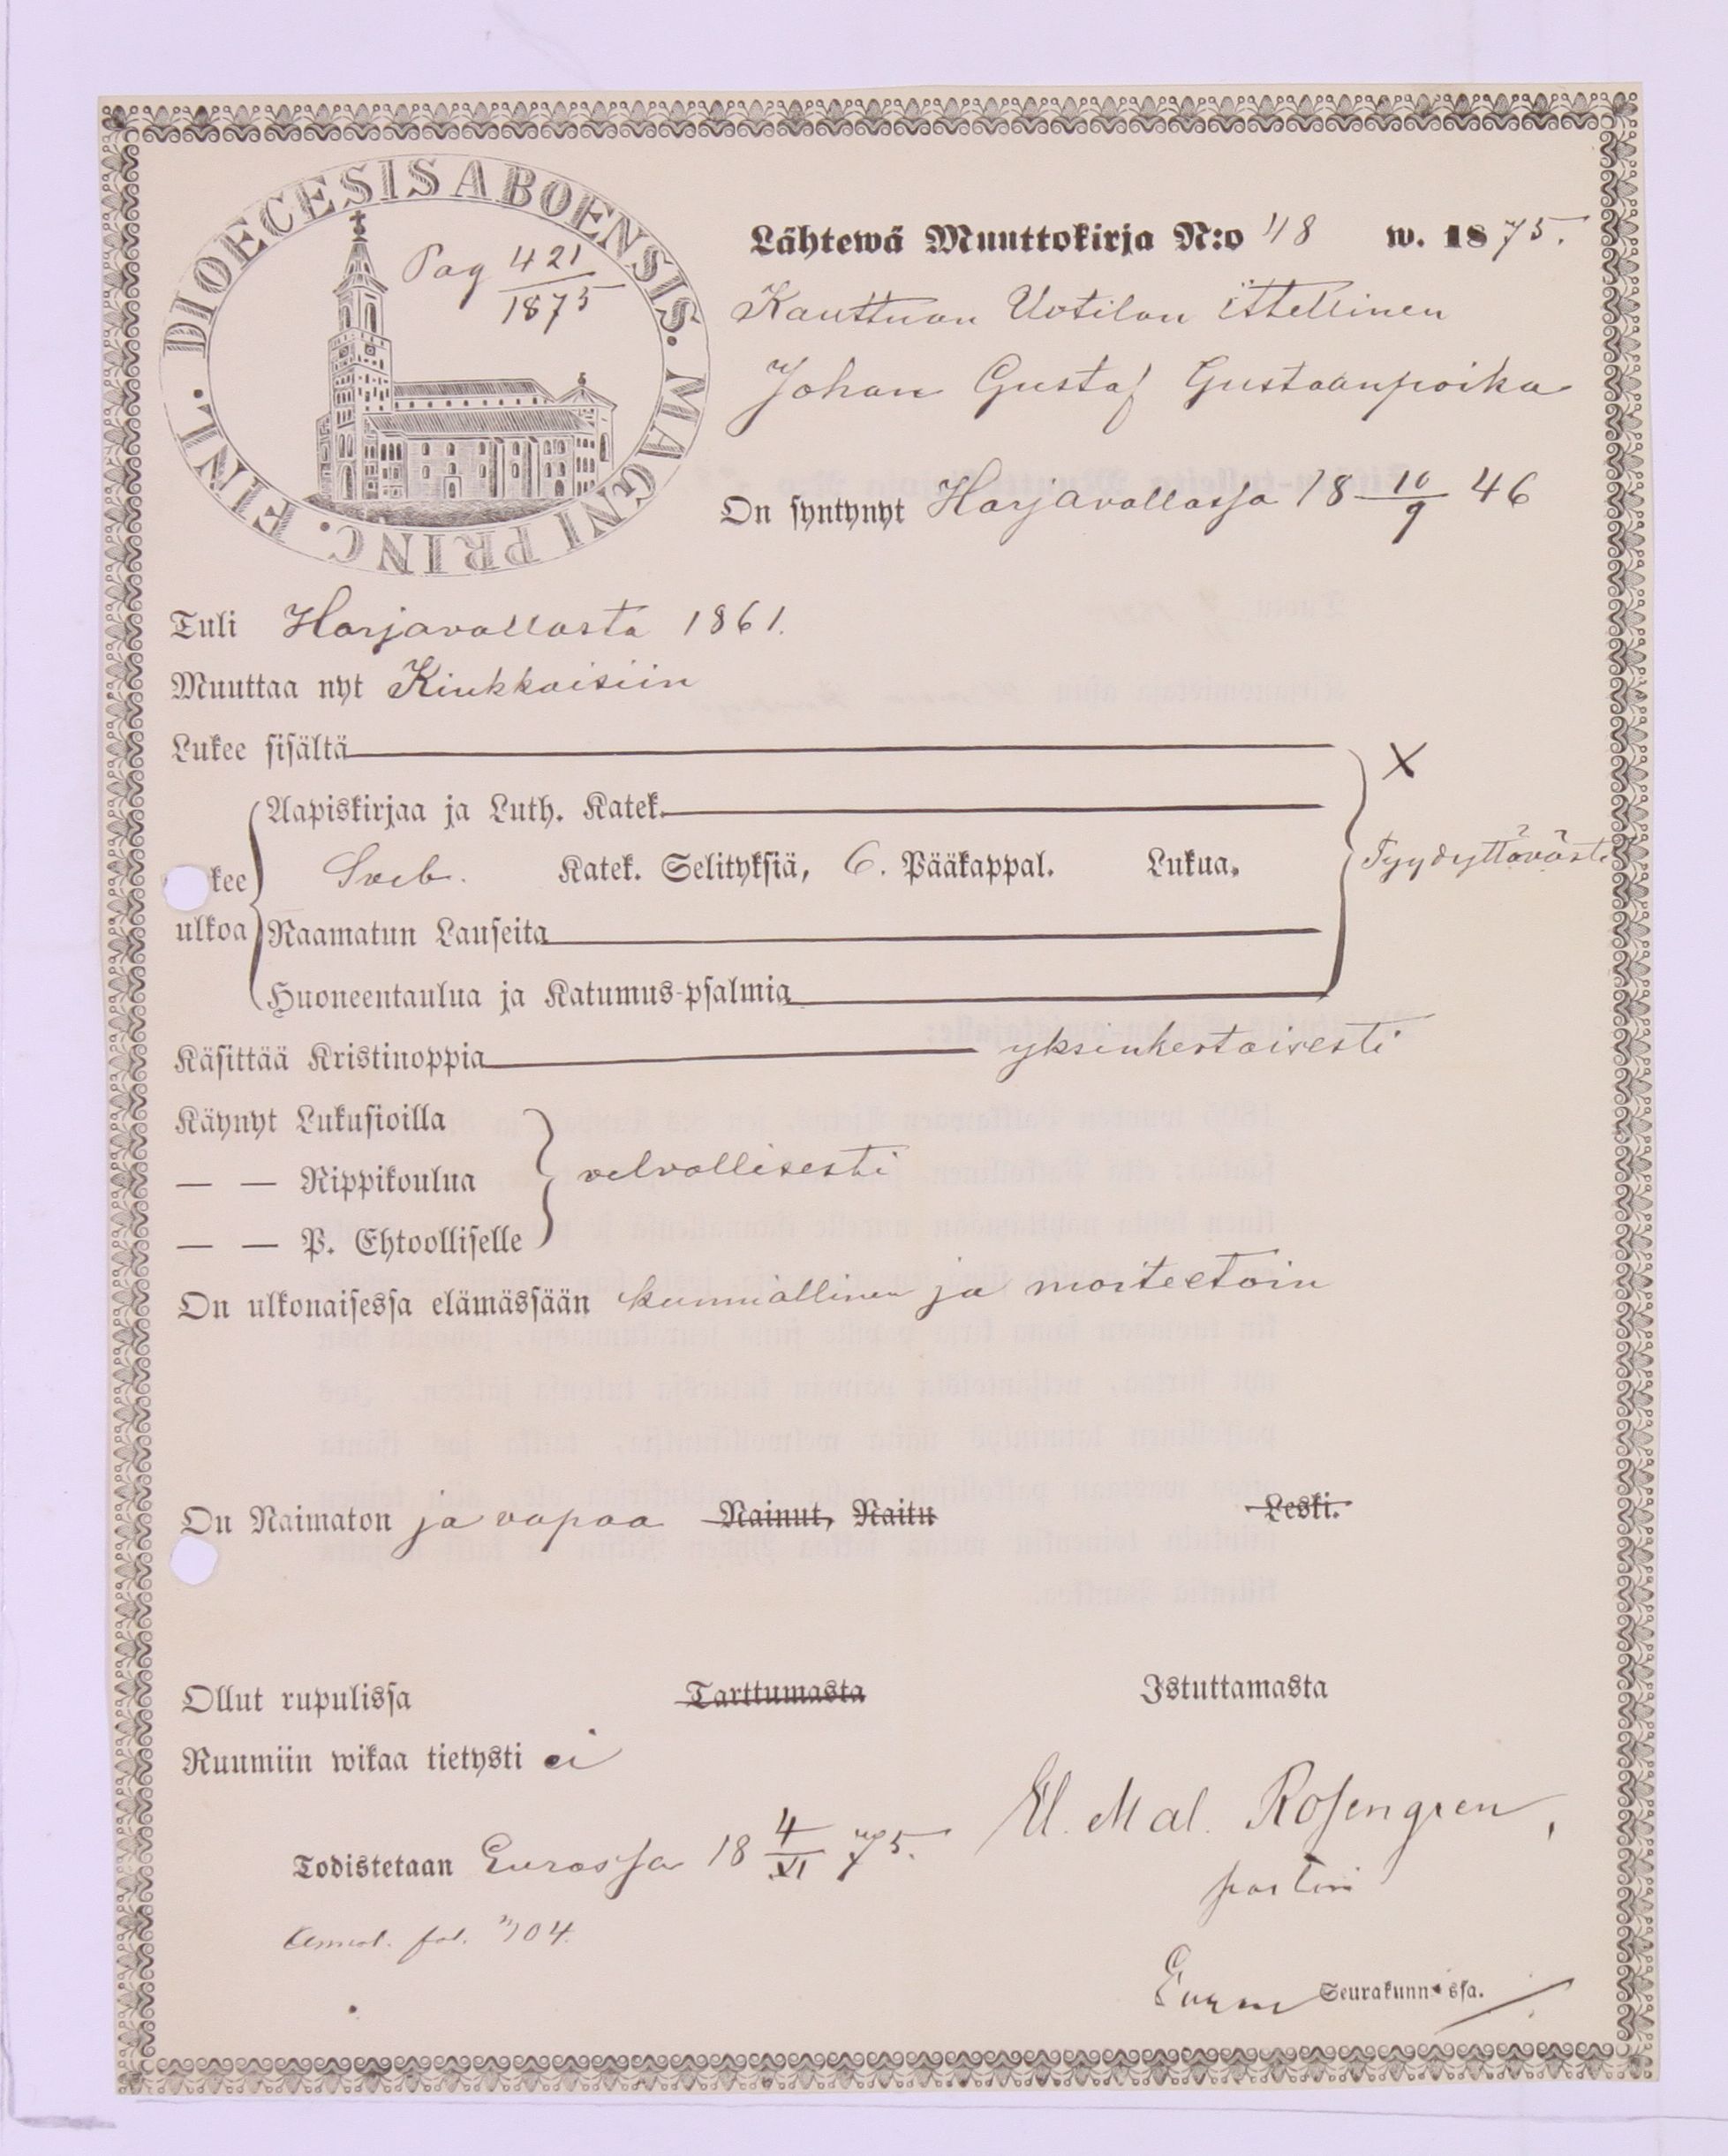 DIOECESIS ABOENSIS. MAGNI PRINC. FINL.
Pag 421
1875
Lähtewä Muuttokirja N:o 48 w. 1875.
Kauttuan Uotilan ittellinen
Johan Gustaf Gustaanpoika
On syntynyt Harjavallassa 18 10/9 46
Tuli Harjavallasta 1861.
Muuttaa nyt Kiukkaisiin
Lukee sisältä
X
Aapiskirjaa ja Luth. Katek.
kee
Sveb. Katek. Selityksiä, 6. Pääkappal. Lukua.
Tyydyttävästi
ulkoa
Raamatun Lauseita
Huoneentaulua ja Katumus-psalmia
Käsittää Kristinoppia yksinkertaisesti
Käynyt Lukusioilla
— — Rippikoulua
velvollisesti
— — P. Ehtoolliselle
On ulkonaisessa elämässään kunniallinen ja moiteetoin
On Naimaton ja vapaa Nainut, Naitu Leski.
Ollut rupulissa Tarttumasta Istuttamasta
Ruumiin wikaa tietysti ei
Todistetaan Eurassa 18 4/XI 75.
El. Mal. Rosengren,
pastori
fol. 704.
Euran Seurakunnassa.